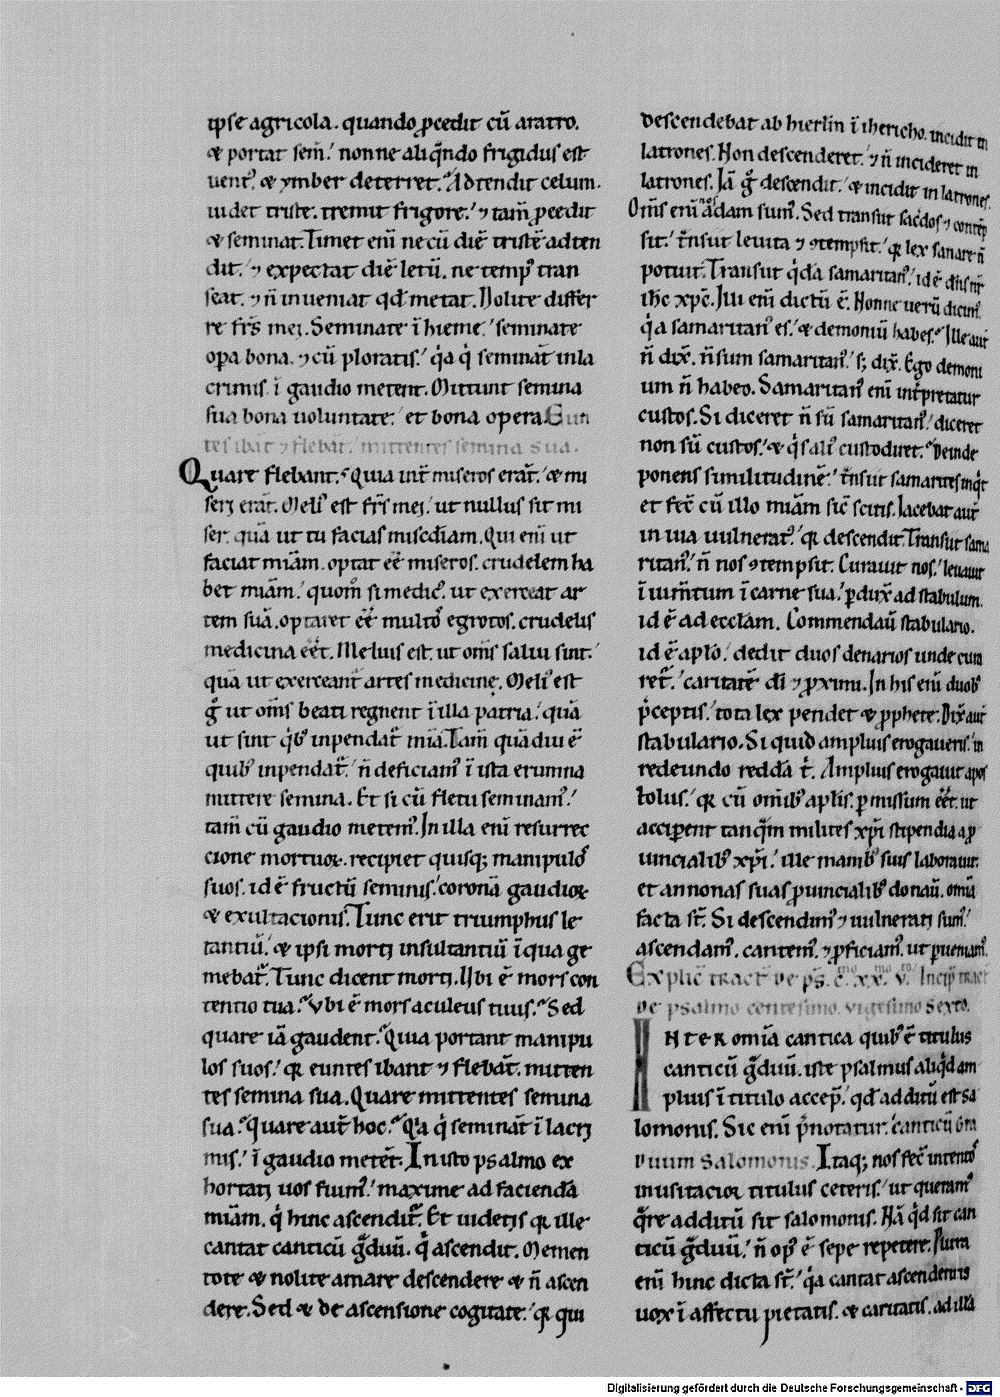 ipse agricola. quando ꝓcedit cū aratro.
& portat sem̄. nonne aliq̄ndo frigidus est
uent᷒. & ymber deterret. Adtendit celum.
uidet triste. tremit frigore. ⁊ tam̄ ꝓcedit
& seminat. Timet eni̅ ne cū diē tristē adten
dit. ⁊ expectat diē letū. ne temp᷒ tran
seat. ⁊ n̄ inueniat qd̄ metat. Nolite differ
re fr̄s mei. Seminate ī hieme. seminate
opa bona. ⁊ cū ploratis. q̇a q̇ seminat̄ in la
crimis. ī gaudio metent. Mittunt semina
sua bona uoluntate. et bona opera. Eun
tes ibāt ⁊ flebāt. mittentes semina sua.
Quare flebant. Quia int̄ miseros erāt. & mi
seri erāt. Meli᷒ est fr̄s mei. ut nullus sit mi
ser. quā ut tu facias misc̄diam. Qui eni̅ ut
faciat miām. optat eē miseros. crudelem ha
bet miām. quom̄ si medic᷒. ut exerceat ar
tem suā. optaret eē multos egrotos. crudelis
medicina eēt. Melius est. ut om̄s salui sint.
quā ut exerceant̄ artes medicine. Meli᷒ est
g̊ ut om̄s beati regnent ī illa patria. quā
ut sint q̇b᷒ inpendat̄ mīa. Tam̄ quādiu ē
quib᷒ inpendat̄. n̄ deficiam᷒ ī ista erumna
mittere semina. Et si cū fletu seminam᷒.
tam̄ cū gaudio metem᷒. In illa eni̅ resurrec
cione mortuoꝝ. recipiet quisq; manipulos
suos. id ē fructū seminis. coronā gaudioꝝ
& exultacionis. Tunc erit triumphus le
tantiū. & ipsi morti insultantiū ī qua ge
mebat̄. Tunc dicent morti. Ubi ē mors con
tentio tua. Vbi ē mors aculeus tuus. Sed
quare iā gaudent. Quia portant manipu
los suos. qꝛ euntes ibant ⁊ flebāt. mitten
tes semina sua. Quare mittentes semina
sua. Quare aut̄ hoc. Q̇a q̇ seminat̄ ī lacri
mis. ī gaudio metēt. In isto psalmo ex
hortati uos sum᷒. maxime ad faciendā
miām. q̇ hinc ascendit̄. Et uidetis qꝛ ille
cantat canticū g̊duū. q̇ ascendit. Memen
tote & nolite amare descendere & n̄ ascen
dere. Sed & de ascensione cogitate. qꝛ qui
descendebat ab hierlm̄ ī ihericho. incidit in
latrones. Non descenderet. ⁊ n̄ incideret in
latrones. Iā g̊ descendit. & incidit in latrones.
Om̄s eni̅ adam sum᷒. Sed transiit sac̄dos ⁊ contēp
sit. t̄nsiit leuita ⁊ ꝯtempsit. qꝛ lex sanare n̄
potuit. Transiit q̇dā samaritan᷒. id ē dn̄s nr̄
ih̄c xp̄c. Illi eni̅ dictū ē. Nonne uerū dicim᷒.
q̇a samaritan᷒ es. & demoniū habes. Ille aut̄
n̄ dix̄. n̄ sum samaritan᷒. s; dix̄. Ego demoni
um n̄ habeo. Samaritan᷒ eni̅ int̄pretatur
custos. Si diceret n̄ sū samaritan᷒. diceret
non sū custos. & q̇s ali᷒ custodiret. Deinde
ponens similitudinē. t̄nsiit samarites inq̇t
et fec̄ cū illo miām sic̄ scitis. Iacebat aut̄
in uia uulnerat᷒. qꝛ descendit. Transiit sama
ritan᷒. n̄ nos ꝯtempsit. Curauit nos. leuauit
ī ium̄tum ī carne sua. ꝑdux̄ ad stabulum.
id ē ad ecclam. Commendaū stabulario.
id ē aplo. dedit duos denarios unde cura
ret̄. caritatē dī ⁊ ꝓximi. In his eni̅ duob᷒
p̄ceptis. tota lex pendet & ꝓphete. Dix̄ aut̄
stabulario. Si quid amplius erogaueris. in
redeundo reddā t̄. Amplius erogauit apos
tolus. qꝛ cū om̄ib᷒ aplis. ꝑmissum eēt. ut
acciperent tanq̄m milites xp̄i stipendia a ꝓ
uincialib᷒ xp̄i. ille manib᷒ suis laborauit.
et annonas suas ꝓuincialib᷒ donaū. om̄ia
facta st̄. Si descendim᷒ ⁊ uulnerati sum᷒.
ascendam᷒. cantem᷒. ⁊ ꝓficiam᷒. ut ꝑueniam᷒.
Explic̄ tract̄ de ps̄. c̄.mo xx.mo v.to Incip̄ tract̄
de psalmo centesimo. vigesimo sexto.
INTER om̄ia cantica quib᷒ ē titulus
canticū g̊duū. iste psalmus aliq̇d am
plius ī titulo accep̄. qd̄ additū est sa
lomonis. Sic eni̅ p̄notatur. canticū gra
duum Salomonis. Itaq; nos fec̄ intentos
inusitacior titulus ceteris. ut queram᷒
q̄re additū sit salomonis. Nā q̇d sit can
ticū g̊duū. n̄ op᷒ ē sepe repetere. Plura
eni̅ hinc dicta st̄. q̇a cantat ascendentis
uox ī affectu pietatis. & caritatis. ad illā
Digitalisierung gefördert durch die Deutsche Forschungsgemeinschaft - DFG